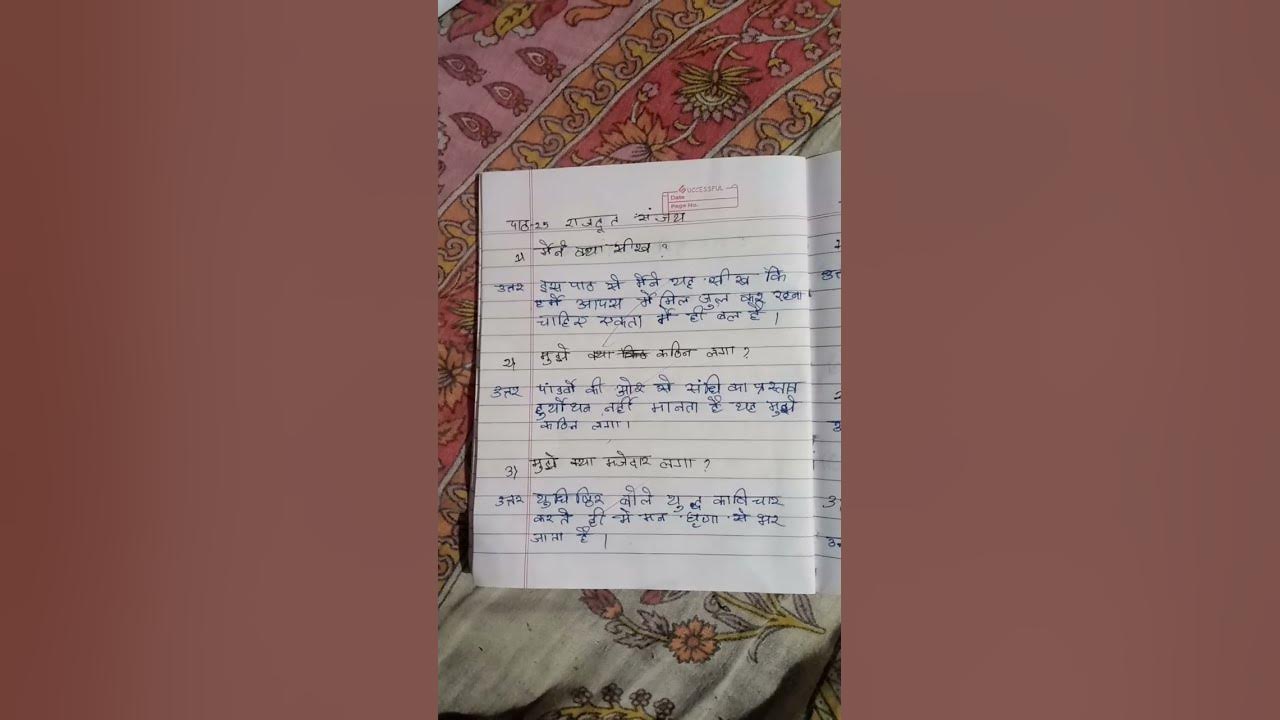 SUCCESSFUL
Date
Page No.
पाठ-25 राजदूत संजय
1) मैंने क्या सीखा ?
उत्तर इस पाठ से मैंने यह सीखा कि
हमें आपस में मिल जुल कर रहना
चाहिए एकता में ही बल है ।
2) मुझे क्या कठिन लगा ?
उत्तर पांडवों की ओर से संधि का प्रस्ताव
दुर्योधन नहीं मानता है यह मुझे
कठिन लगा ।
3) मुझे क्या मजेदार लगा ?
उत्तर युधिष्ठिर बोले युद्ध का विचार
करते ही मे मन घृणा से भर
जाता है ।